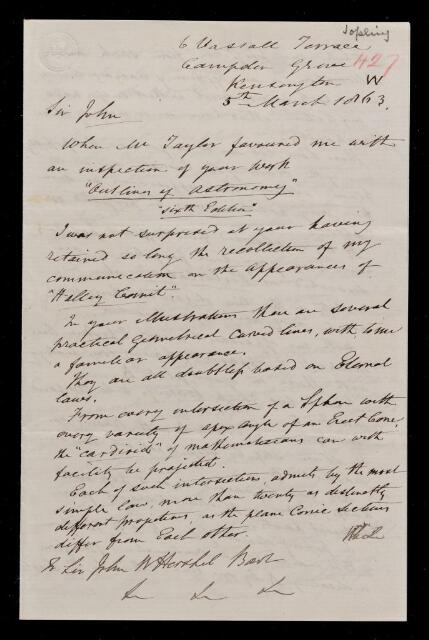 Jopling
6 Vassall Terrace
Campden Grove 427
Kensington W
5th March 1863.
Sir John
When Mr Taylor favoured me with
an inspection of your Work
"Outlines of Astronomy"
"Sixth Edition"
I was not surprised at your having
retained so long the recollection of my
communication on the appearances of
"Halley Comit".
In your Illustrations there are several
practical geometrical curved lines, with, to me
a familiar appearance.
They are all doubtless based on Eternal
laws.
From every intersection of a Sphere with
every variety of apex angle of an Erect Cone,
the "cardioide" of mathematicians can with
facility be projected.
Each of such intersections, admits by the most
simple law, more than twenty as distinctly
different projections, as the plane Conic Sections
differ from Each other.
To Sir John W Herschel Bart